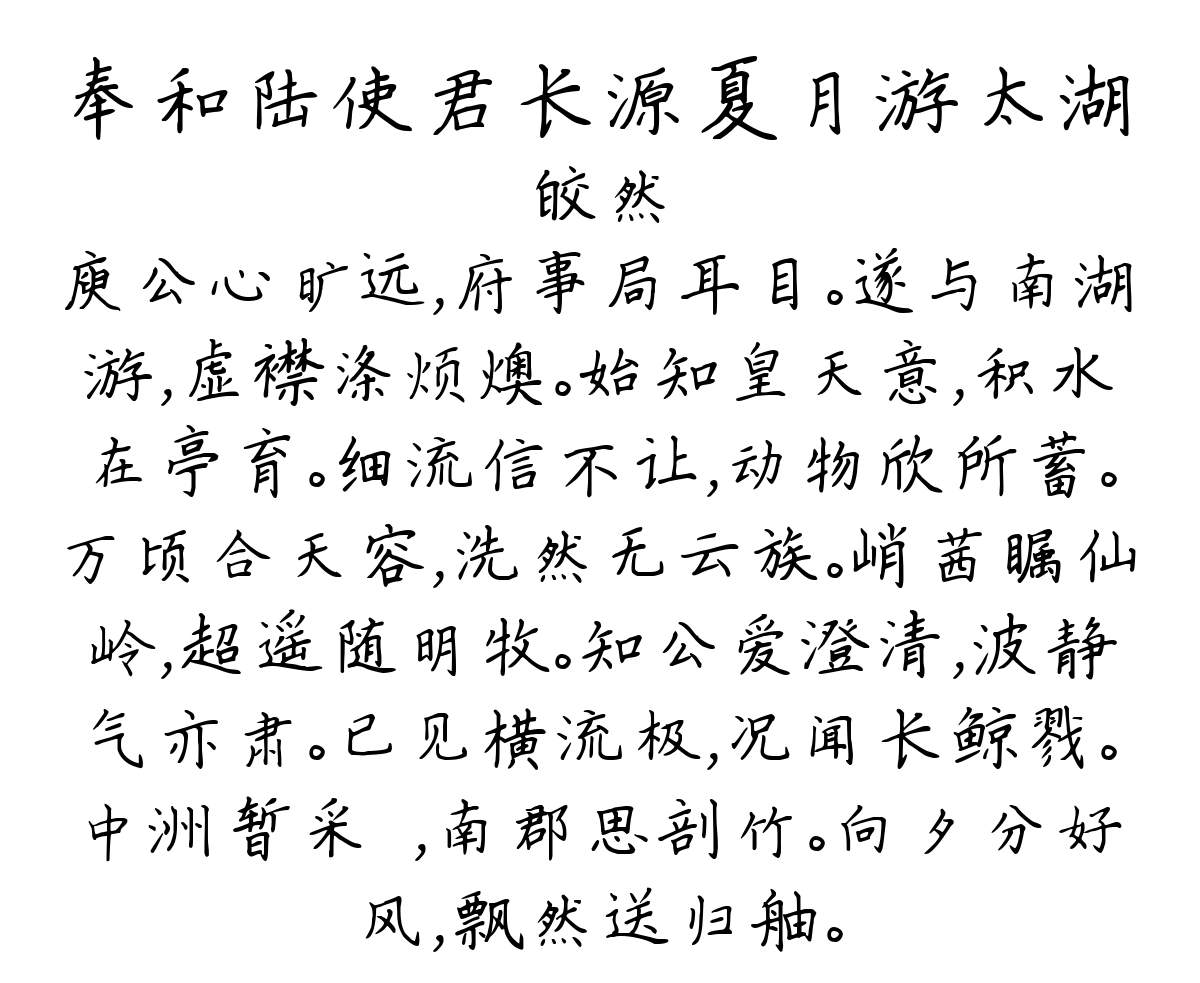 奉和陆使君长源夏月游太湖
皎然
庾公心旷远,府事局耳目。遂与南湖
游,虚襟涤烦燠。始知皇天意,积水
在亭育。细流信不让,动物欣所蓄。
万顷合天容,洗然无云族。峭茜瞩仙
岭,超遥随明牧。知公爱澄清,波静
气亦肃。已见横流极,况闻长鲸戮。
中洲暂采 ,南郡思剖竹。向夕分好
风,飘然送归舳。